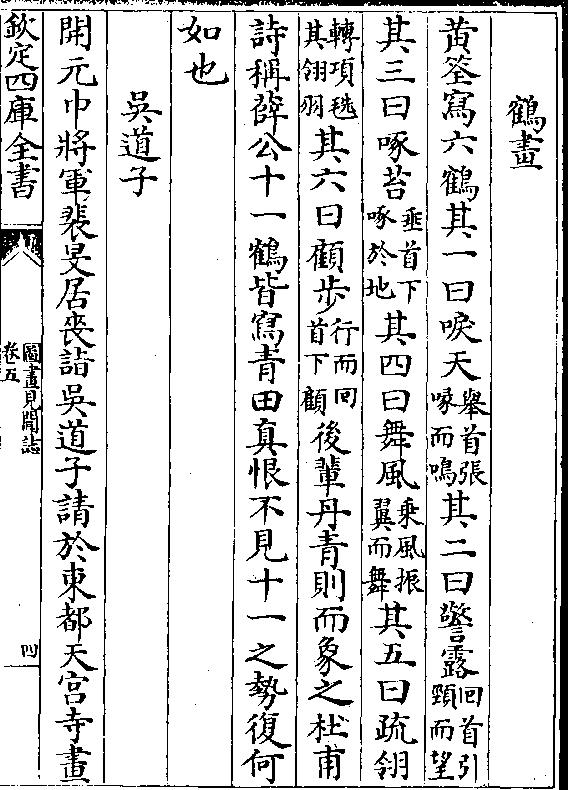 鶴畫
黄筌寫六鶴其一曰唳天舉首張喙而鳴其二曰警露回首引頸而望
其三曰啄苔垂首下啄於地其四曰舞風乗風振翼而舞其五曰疏翎
轉項毨其翎羽其六曰顧步行而回首下顧後輩丹青則而象之杜甫
詩稱薛公十一鶴皆寫青田真恨不見十一之勢復何
如也
吳道子
開元中將軍裴旻居喪詣吳道子請於東都天宫寺畫
欽定四庫全書
圖畫見聞誌
卷五
四